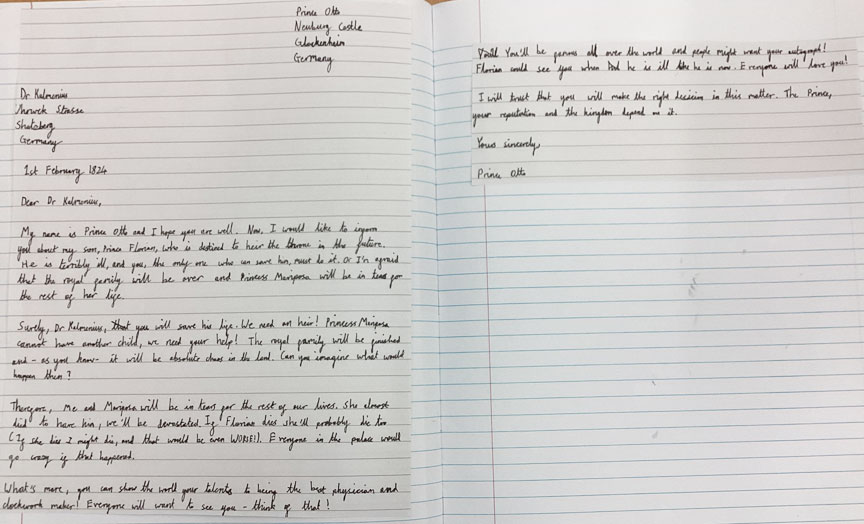 Prince Otto
Neuburg Castle
Glockenheim
Germany
Dr Kalmenius
Strasse
Schatzberg
Germany
1st February 1824
Dear Dr Kalmenius,
My name is Prince Otto and I hope you are well. Now, I would like to inform
you about my son, Prince Florian, who is destined to heir the throne in the future.
He is terribly ill, and you, the only one who can save him, must do it. Or I'm afraid
that the royal family will be over and Princess Mariposa will be in tears for
the rest of her life.
Surely, Dr Kalmenius, that you will save his life. We need an heir! Princess Mariposa
cannot have another child, we need your help! The royal family will be finished
and - as you know - it will be absolute chaos in the land. Can you imagine what would
happen then?
Therefore, me and Mariposa will be in tears for the rest of our lives. She almost
died to have him, we'll be devastated. If Florian dies she'll probably die too
(If she dies I might die, and that would be even WORSE!). Everyone in the palace would
go crazy if that happened.
What's more, you can show the world your talents to being the best physician and
clockwork maker! Everyone will want to see you - think of that!
You'll be famous all over the world and people might want your autograph!
Florian could see you when he is ill like he is now. Everyone will love you!
I will trust that you will make the right decision in this matter. The Prince,
your reputation and the kingdom depend on it.
Yours sincerely,
Prince Otto